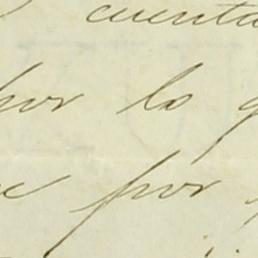 cuenta
por lo q
por